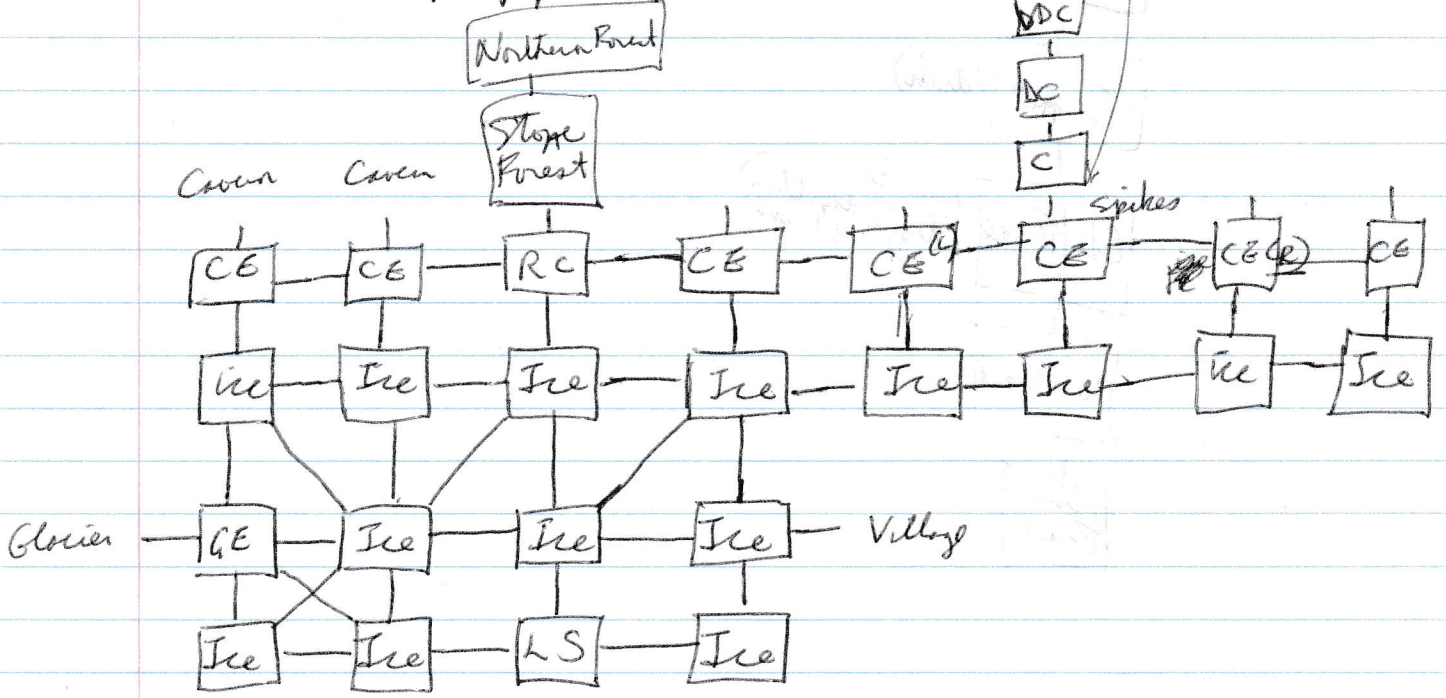 DDC
Northern Forest
DC
Slope
Forest
C
Cavern Cavern
Spikes
CE CE RC CE CE(L) CE CE(R) CE
Ice Ice Ice Ice Ice Ice Ice Ice
Glacier GE Ice Ice Ice Village
Ice Ice LS Ice